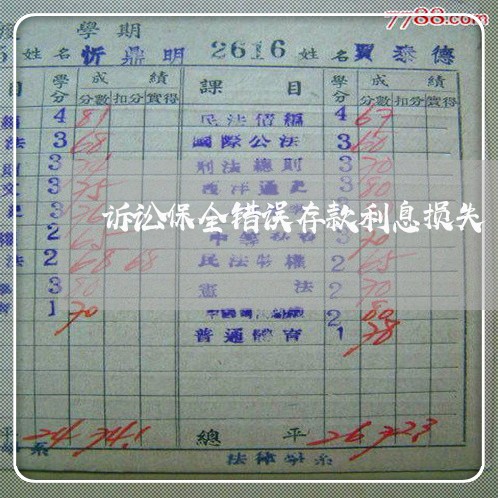 7788.com
學期
姓名 忻鼎明 2616 姓名 賈泰德
目 學分 成績 課目 學分 成績
分數 扣分 實得 分數 扣分 實得
4 81 民法債編 4 67
法 3 68 國際公法 3 60
3 刑法總則 3 70
3 75 西洋通史 3 80
诉讼保全错误存款利息损失
2 65 3 70
法 2 68 68 民法物權 2 65
3 80 憲法 2 70
1 70 2 80
普通體育 1 78
平 24 74.1 總平 26 72.3
系 法律學系